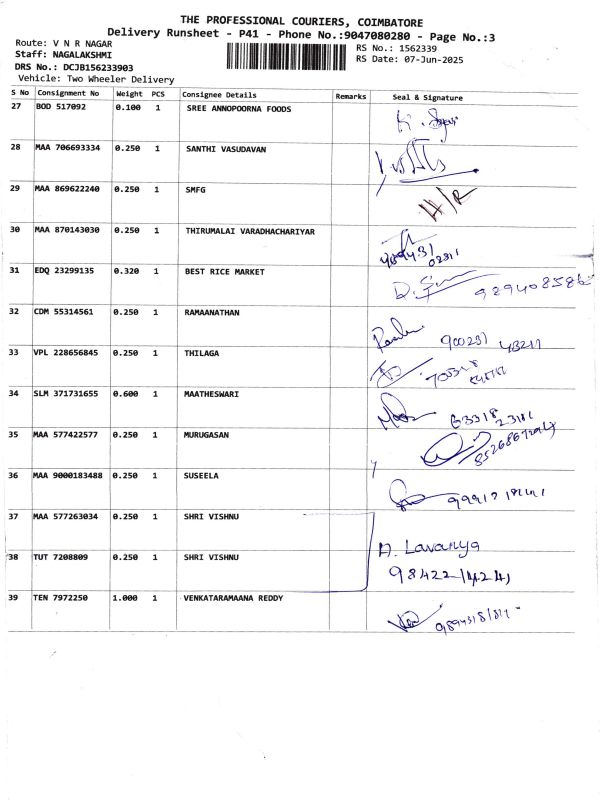 THE PROFESSIONAL COURIERS, COIMBATORE
Delivery Runsheet - P41 - Phone No.:9047080280 - Page No.:3
Route: V N R NAGAR
Staff: NAGALAKSHMI
DRS No.: DCJB156233903
Vehicle: Two Wheeler Delivery
RS No.: 1562339
RS Date: 07-Jun-2025
S No Consignment No Weight PCS Consignee Details Remarks Seal & Signature
27 BOD 517092 0.100 1 SREE ANNOPOORNA FOODS
28 MAA 706693334 0.250 1 SANTHI VASUDAVAN
29 MAA 869622240 0.250 1 SMFG H/R
30 MAA 870143030 0.250 1 THIRUMALAI VARADHACHARIYAR
31 EDQ 23299135 0.320 1 BEST RICE MARKET
32 CDM 55314561 0.250 1 RAMAANATHAN
33 VPL 228656845 0.250 1 THILAGA
34 SLM 371731655 0.600 1 MAATHESWARI
35 MAA 577422577 0.250 1 MURUGASAN
36 MAA 9000183488 0.250 1 SUSEELA
37 MAA 577263034 0.250 1 SHRI VISHNU
A. Lavanya
38 TUT 7208809 0.250 1 SHRI VISHNU
39 TEN 7972250 1.000 1 VENKATARAMAANA REDDY